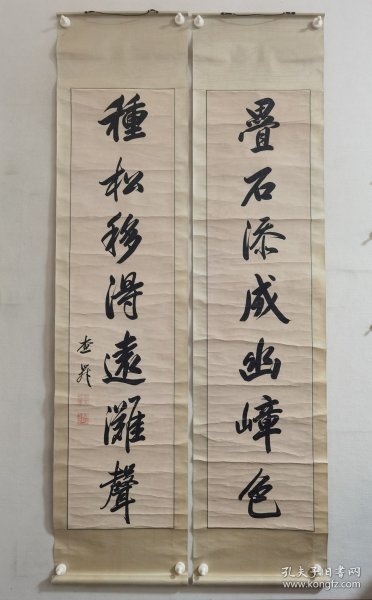 疊石添成幽嶂色
種松移得遠灘聲
查昇
孔夫子旧书网
www.kongfz.com